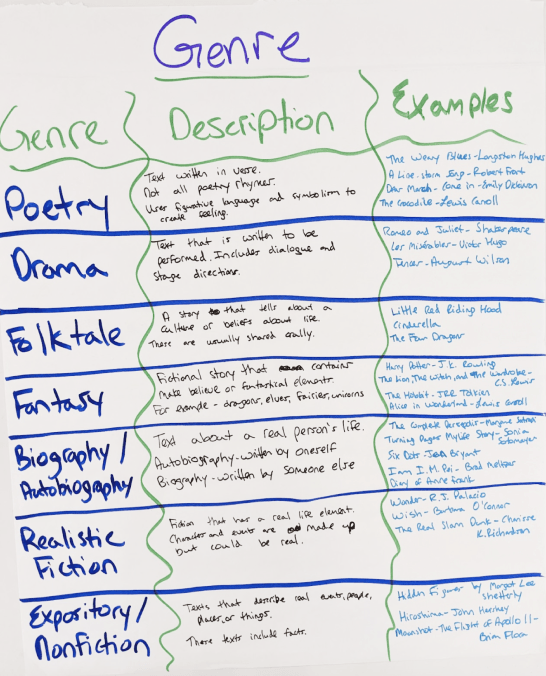 Genre
Genre
Description
Examples
Poetry
Text written in verse.
Not all poetry rhymes.
Uses figurative language and symbolism to
create feeling.
The Weary Blues - Langston Hughes
A Line-storm Song - Robert Frost
Dear March - Come in - Emily Dickinson
The Crocodile - Lewis Caroll
Drama
Text that is written to be
performed. Includes dialogue and
stage directions.
Romeo and Juliet - Shakespeare
Les Misérables - Victor Hugo
Fences - August Wilson
Folktale
A story that tells about a
culture or beliefs about life.
These are usually shared orally.
Little Red Riding Hood
Cinderella
The Four Dragons
Fantasy
Fictional story that contains
make believe or fantastical elements.
For example - dragons, elves, fairies, unicorns
Harry Potter - J.K. Rowling
The Lion, The Witch, and the Wardrobe -
C.S. Lewis
The Hobbit - JRR Tolkien
Alice in Wonderland - Lewis Caroll
Biography /
Autobiography
Text about a real person's life.
Autobiography - written by oneself
Biography - written by someone else
The Complete Persepolis - Marjane Satrapi
Turning Pages My Life Story - Sonia
Sotomayor
Six Dots Jen Bryant
I am I.M. Pei - Brad Meltzer
Diary of Anne Frank
Realistic
Fiction
Fiction that has a real life element.
Characters and events are made up
but could be real.
Wonder - R.J. Palacio
Wish - Barbara O'Connor
The Real Slam Dunk - Charisse
K. Richardson
Expository /
Nonfiction
Texts that describe real events, people,
places, or things.
These texts include facts.
Hidden Figures by Margot Lee
Shetterly
Hiroshima - John Hershey
Moonshot - The Flight of Apollo 11 -
Brian Floca